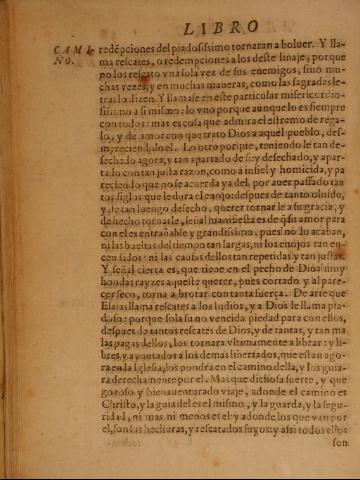 LIBRO
CAMI-
NO.
redẽpciones del piadosissimo tornaran a boluer. Y lla-
ma rescates, o redempciones a los deste linaje, porque
no los rescato vna sola vez de sus enemigos, sino mu-
chas vezes, y en muchas maneras, como las sagradas le-
tras lo dizen. Y llamase en este particular misericordio-
sissimo a si mismo: lo vno porque aunque lo es siempre
con todos: mas es cosa que admira el estremo de rega-
lo, y de amor con que trato Dios a aquel pueblo, des-
mereciendolo el. Lo otro porque, teniendo le tan de-
sechado agora, y tan apartado de si: y desechado, y apar-
tado con tan justa razon, como a infiel y homicida, y pa
reciendo que no se acuerda ya del, por auer passado tan
tos siglos que le dura el enojo: despues de tanto oluido,
y de tan luengo desecho, querer tornarle a su gracia, y
de hecho tornarle, señal manifiesta es de q̃ su amor para
con el es entrañable y grandissimo, pues no lo acaban,
ni las bueltas del tiempo tan largas, ni los enojos tan en-
cendidos: ni las causas dellos tan repetidas y tan justas.
Y señal cierta es, que tiene en el pecho de Dios muy
hondas rayzes aqueste querer, pues cortado y al pare-
cer seco, torna a brotar con tanta fuerça. De arte que
Esaias llama rescates a los Iudios, y a Dios le llama pia-
doso: porque sola su no vencida piedad para con ellos,
despues de tantos rescates de Dios, y de tantas, y tan ma
las pagas dellos, los tornara vltimamente a librar: y li-
bres y ayuntados a los demas libertados, que estan ago-
ra en la Iglesia, los pondra en el camino della, y los guia-
ra derechamente por el. Mas que dichosa suerte, y que
gozoso y bienauenturado viaje, adonde el camino es
Christo, y la guia del es el mismo, y la guarda, y la segu-
ridad, ni mas ni menos es el: y adonde los que van por
el, son sus hechuras, y rescatados suyos: y assi todos ellos
son